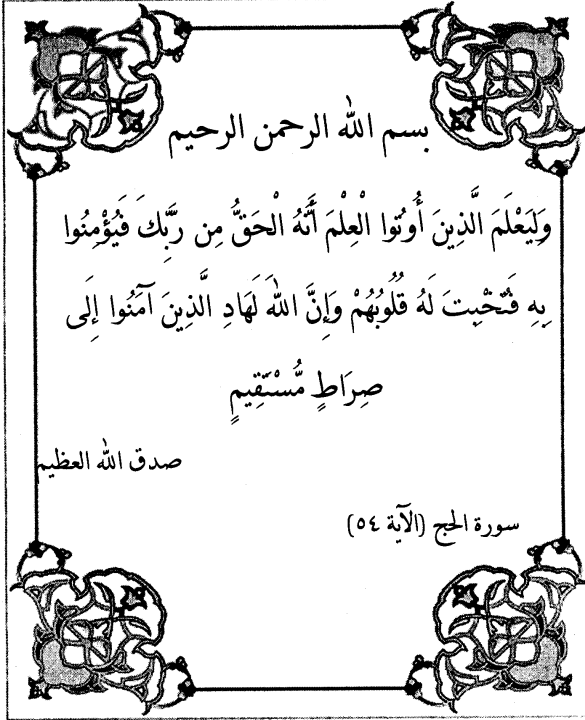 بسم الله الرحمن الرحيم
وَلِيَعْلَمَ الَّذِينَ أُوتُوا الْعِلْمَ أَنَّهُ الْحَقُّ مِن رَّبِّكَ فَيُؤْمِنُوا
بِهِ فَتُخْبِتَ لَهُ قُلُوبُهُمْ وَإِنَّ اللَّهَ لَهَادِ الَّذِينَ آمَنُوا إِلَى
صِرَاطٍ مُّسْتَقِيمٍ
صدق الله العظيم
سورة الحج (الآية ٥٤)